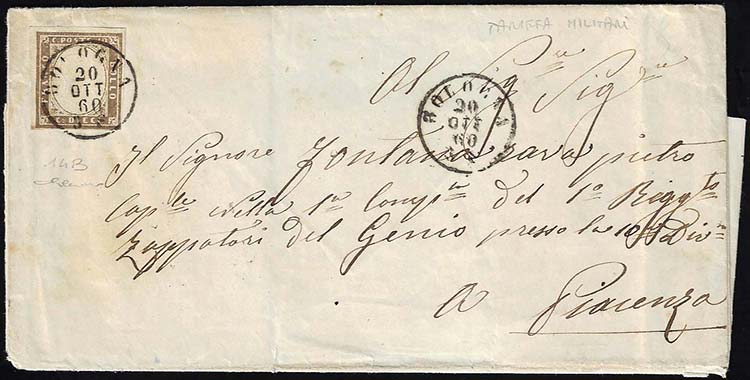 TARIFFA MILITARI
C. POSTE
C. DIECI
BOLOGNA
20
OTT
60
BOLOGNA
20
OTT
60
Al Sig.re Sig.re
14B
Il Signore Fontana pietro
Cap.le nella 1a Comp.ia del 1o Regg.to
Zappatori del Genio presso la Div.ne
A Piacenza